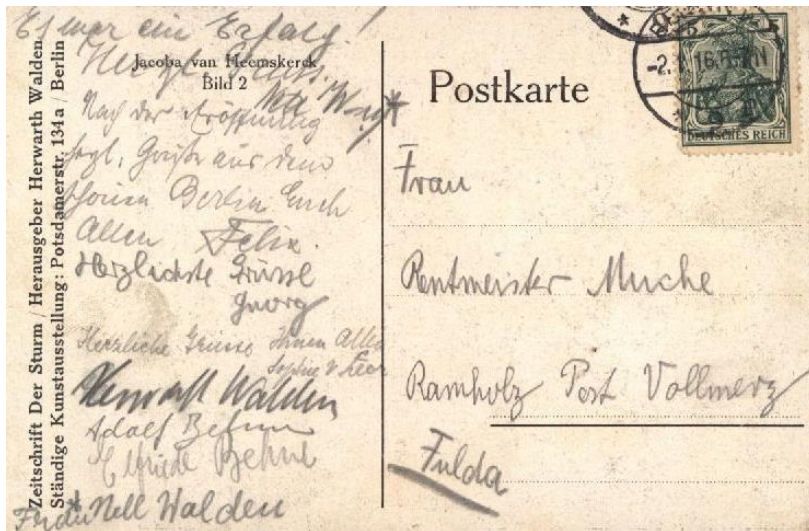 Zeitschrift Der Sturm / Herausgeber Herwarth Walden
Ständige Kunstausstellung: Potsdamerstr. 134a / Berlin
Jacoba van Heemskerck
Bild 2
Es war ein Erfolg!
Herzl. Gruss.
Nach der Eröffnung
hrzl. Grüße aus dem
Berlin Euch
Allen Felix.
Herzlichste Grüsse
Georg
Herzliche Grüsse Ihnen Allen
Sophie v Leer
Herwarth Walden
Adolf Behne
Elfriede Behne
Nell Walden
Postkarte
DEUTSCHES REICH
Frau
Rentmeister Muche
Ramholz Post Vollmerz
Fulda